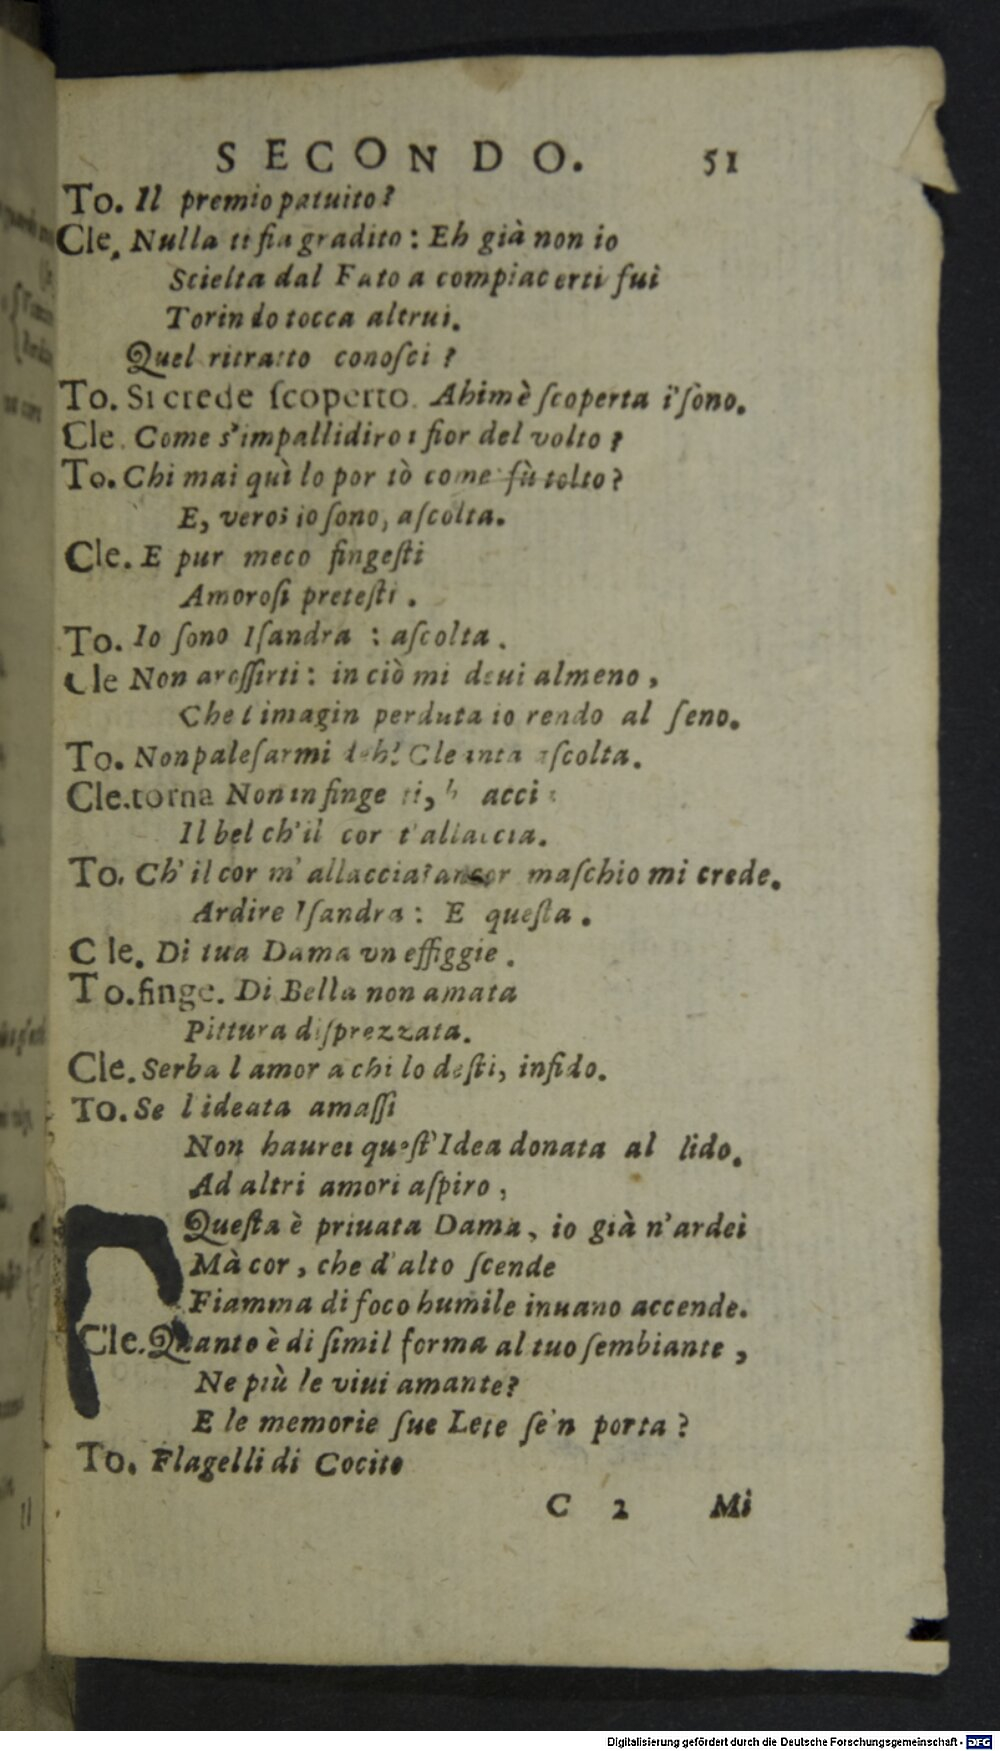 SECONDO. 51
To. Il premio patuito?
Cle. Nulla ti fia gradito: Eh già non io
Scielta dal Fato a compiacerti fui
Torindo tocca altrui.
Quel ritratto conoſci?
To. Si crede ſcoperto. Ahimè ſcoperta i' ſono.
Cle. Come s'impallidiro i fior del volto?
To. Chi mai quì lo portò come fù tolto?
E, vero; io ſono, aſcolta.
Cle. E pur meco fingeſti
Amoroſi preteſti.
To. Io ſono Iſandra: aſcolta.
Cle Non aroſſirti: in ciò mi deui almeno,
Che l imagin perduta io rendo al ſeno.
To. Non paleſarmi deh! Cleanta aſcolta.
Cle. torna Non infinge ti, acci
Il bel ch'il cor t'allaccia.
To. Ch'il cor m'allaccia? ancor maſchio mi crede.
Ardire Iſandra: E queſta.
Cle. Di tua Dama vn effiggie.
To. finge. Di Bella non amata
Pittura diſprezzata.
Cle. Serba l amor a chi lo deſti, infido.
To. Se l ideata amaſſi
Non haurei queſt'Idea donata al lido.
Ad altri amori aſpiro,
Queſta è priuata Dama, io già n'ardei
Mà cor, che d'alto ſcende
Fiamma di foco humile inuano accende.
Cle. Quanto è di ſimil forma al tuo ſembiante,
Ne più le viui amante?
E le memorie ſue Lete ſe'n porta?
To. Flagelli di Cocito
C 2 Mi
Digitalisierung gefördert durch die Deutsche Forschungsgemeinschaft - DFG